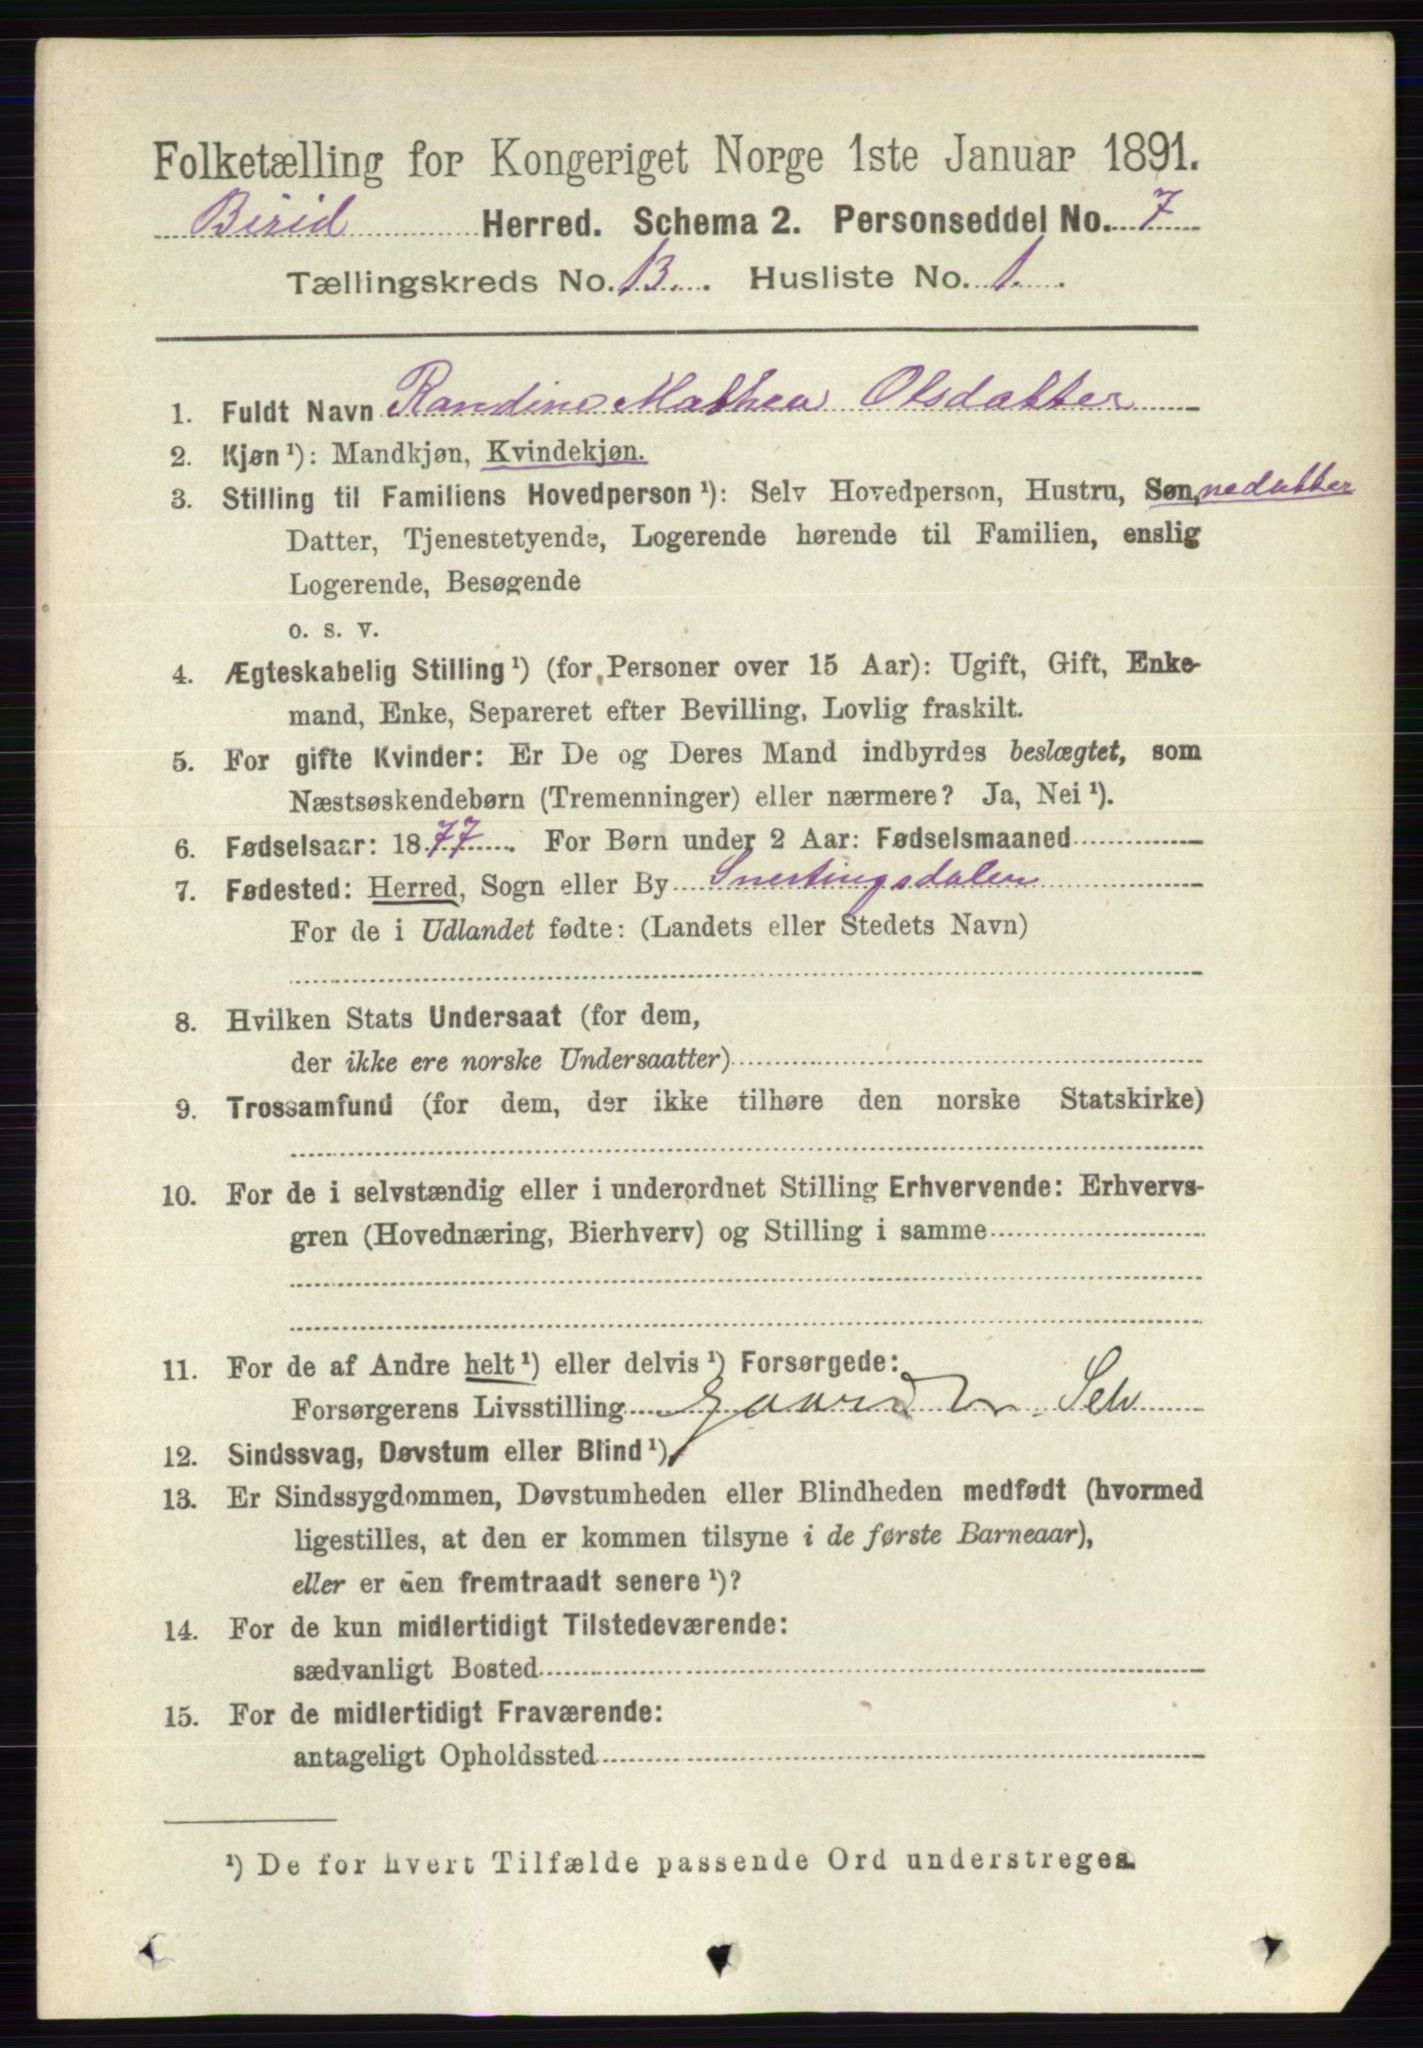 Folketælling for Kongeriget Norge 1ste Januar 1891.
Birid Herred. Schema 2. Personseddel No. 7
Tællingskreds No. 13. Husliste No. 1.
1. Fuldt Navn Randine Mathea Olsdatter
2. Kjøn ¹): Mandkjøn, Kvindekjøn.
3. Stilling til Familiens Hovedperson ¹): Selv Hovedperson, Hustru, Søn, nedatter
Datter, Tjenestetyende, Logerende hørende til Familien, enslig
Logerende, Besøgende
o. s. v.
4. Ægteskabelig Stilling ¹) (for Personer over 15 Aar): Ugift, Gift, Enke-
mand, Enke, Separeret efter Bevilling, Lovlig fraskilt.
5. For gifte Kvinder: Er De og Deres Mand indbyrdes beslægtet, som
Næstsøskendebørn (Tremenninger) eller nærmere? Ja, Nei ¹).
6. Fødselsaar: 1877. For Børn under 2 Aar: Fødselsmaaned
7. Fødested: Herred, Sogn eller By Snertingsdalen
For de i Udlandet fødte: (Landets eller Stedets Navn)
8. Hvilken Stats Undersaat (for dem,
der ikke ere norske Undersaatter)
9. Trossamfund (for dem, der ikke tilhøre den norske Statskirke)
10. For de i selvstændig eller i underordnet Stilling Erhvervende: Erhvervs-
gren (Hovednæring, Bierhverv) og Stilling i samme
11. For de af Andre helt ¹) eller delvis ¹) Forsørgede:
Forsørgerens Livsstilling Selv
12. Sindssvag, Døvstum eller Blind ¹).
13. Er Sindssygdommen, Døvstumheden eller Blindheden medfødt (hvormed
ligestilles, at den er kommen tilsyne i de første Barneaar),
eller er den fremtraadt senere ¹)?
14. For de kun midlertidigt Tilstedeværende:
sædvanligt Bosted
15. For de midlertidigt Fraværende:
antageligt Opholdssted
¹) De for hvert Tilfælde passende Ord understreges.